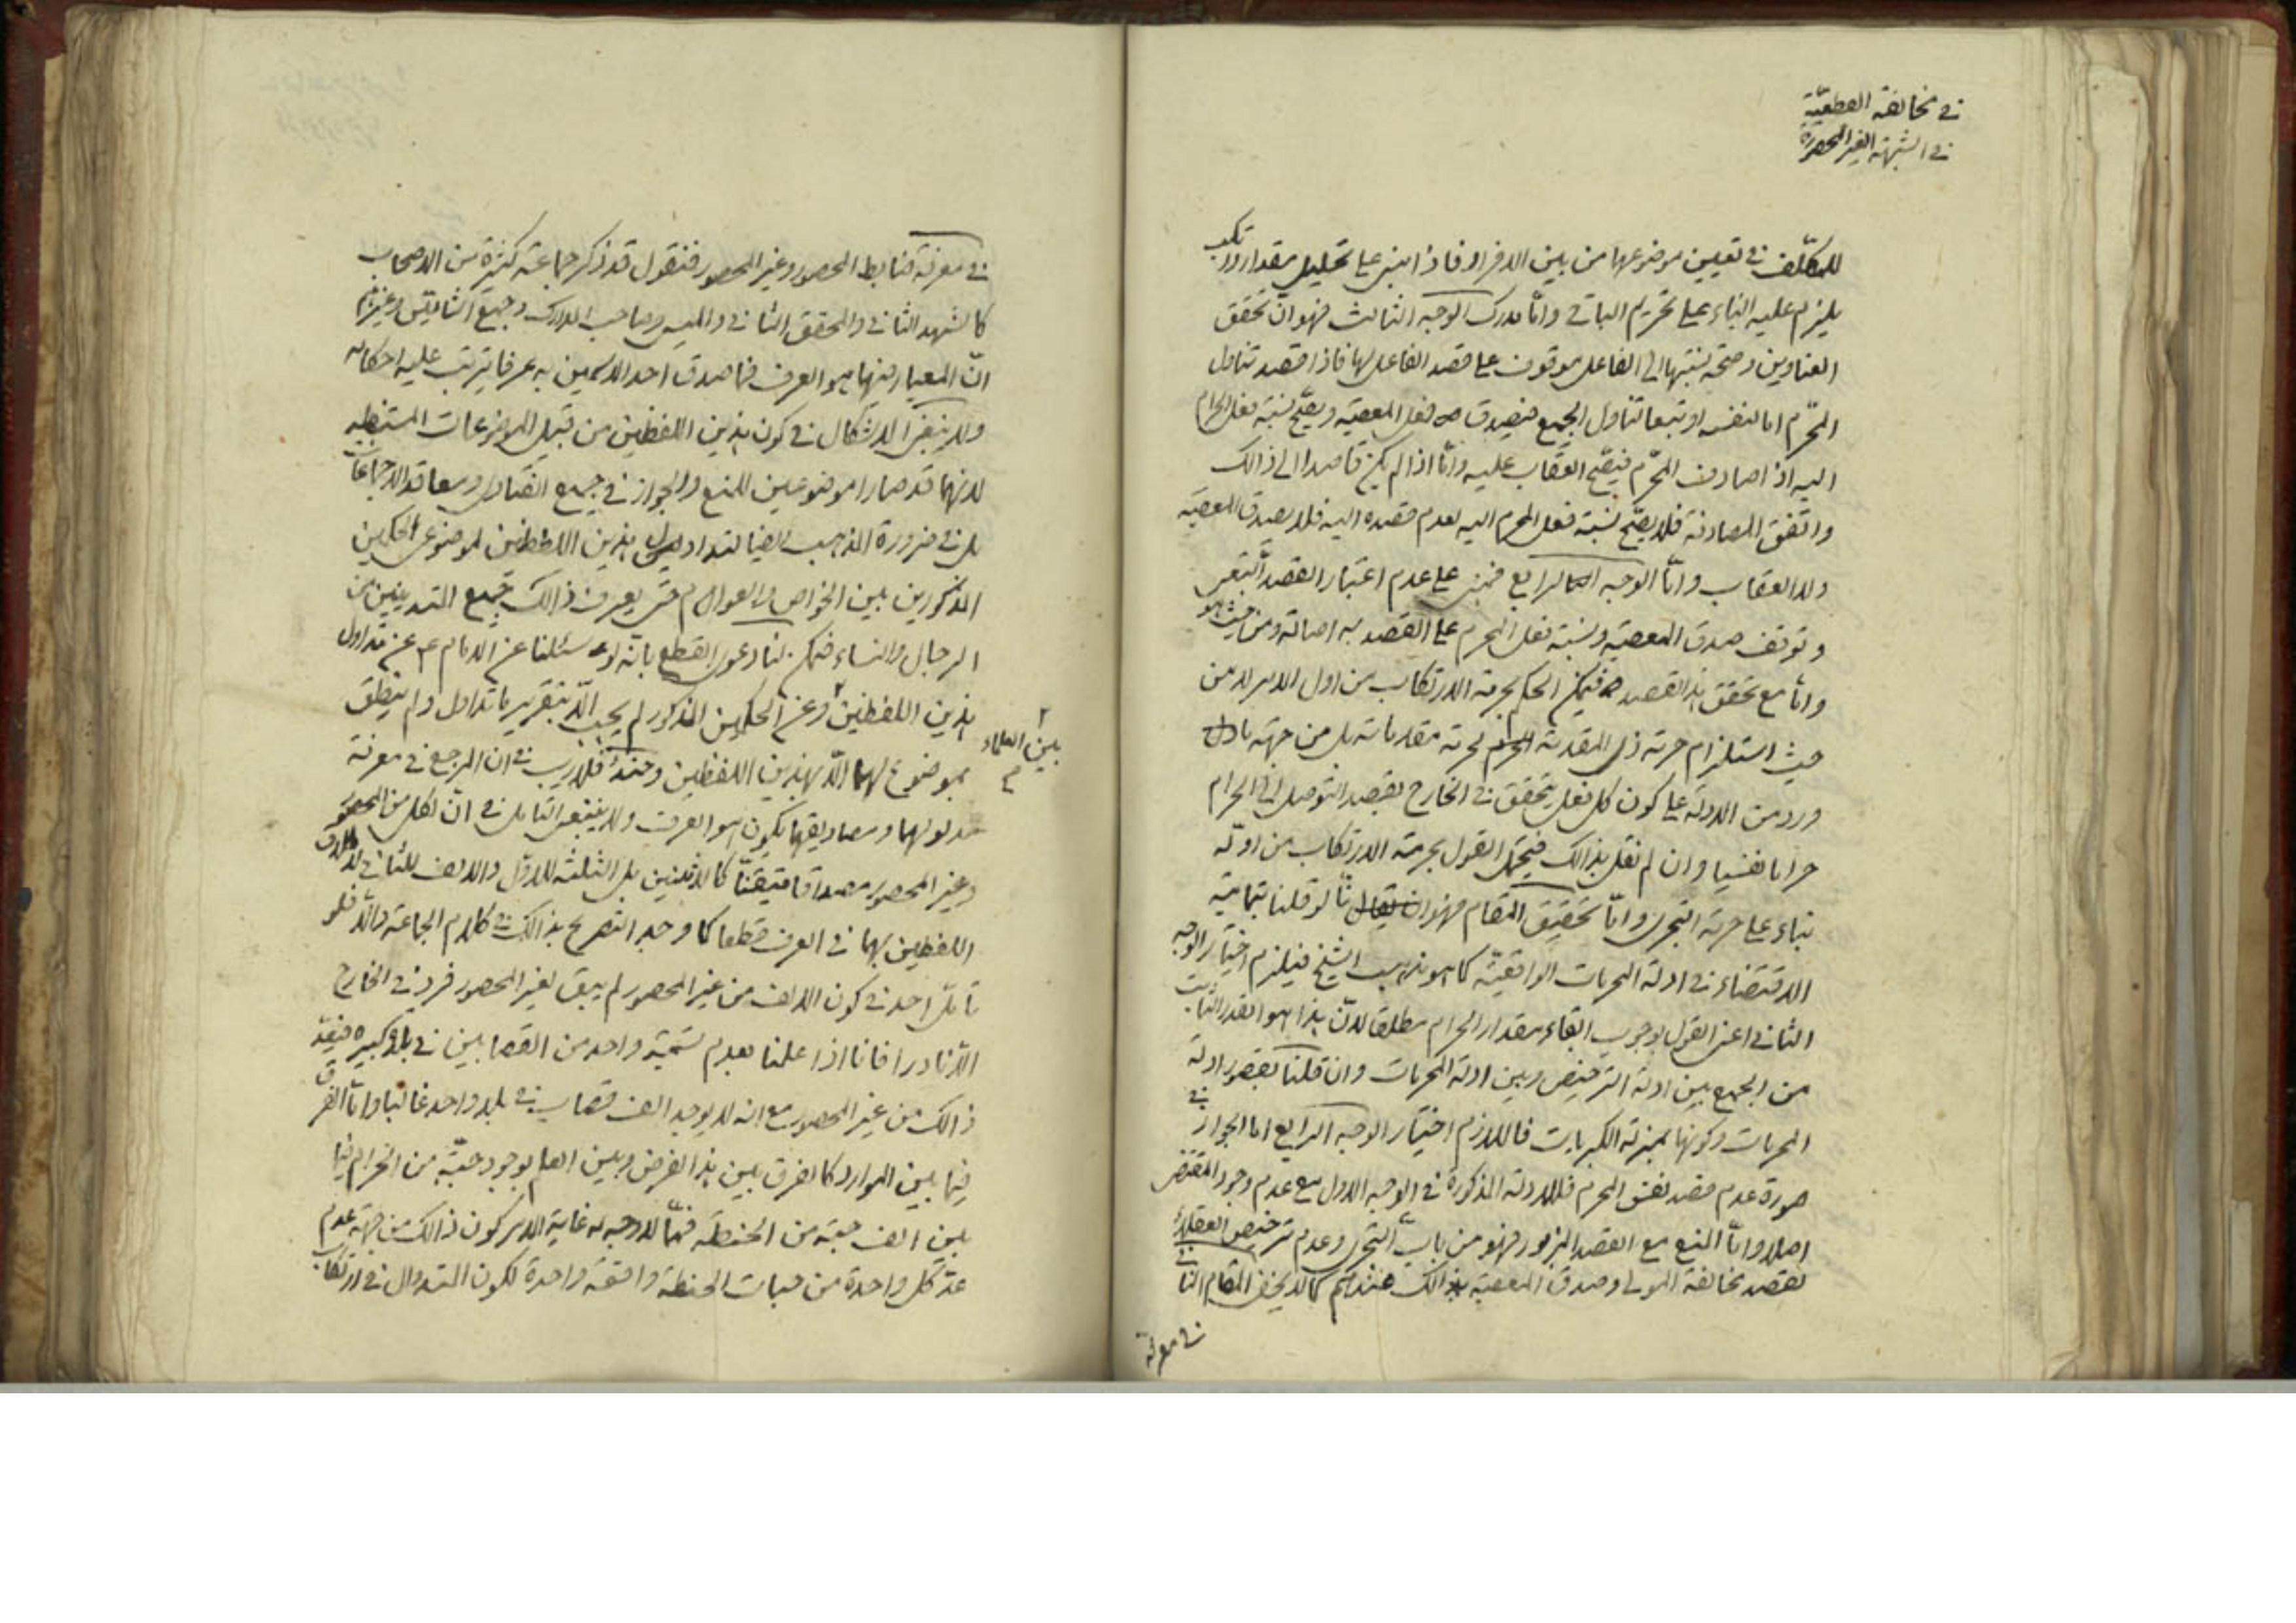 في مخالفة القطعيّة
في الشبهة الغير المحصورة
للمكلّف في تعيين موضوعها من بين الافراد فاذا بنى على تحليل مقدار وارتكب
يلزم عليه البناء على تحريم الباقي وامّا مدرك الوجه الثالث فهو انّ تحقق
العناوين وصحّة نسبتها الى الفاعل موقوف على قصد الفاعل لها فاذا قصد تناول
المحّرم اما لنفسه او تبعا لتناول الجميع فيصدق فعل المعصية ويصّح نسبة فعل الحرام
اليه اذا صادف المحّرم فيصّح العقاب عليه وامّا اذا لم يكن قاصدا الى ذالك
واتّفق المصادفة فلا يصّح نسبة فعل المحرم اليه لعدم قصده اليه فلا يصدق المعصية
ولا العقاب وامّا الوجه الرابع فمبني على عدم اعتبار القصد التبعي
وتوقف صدق المعصية ونسبة فعل المحرم على القصد به اصالة ومن حيث هو
وامّا مع تحقق هذا القصد فيمكن الحكم بحرمة الارتكاب من اول الامر لا من
حيث استلزام حرمة ذى المقدمة لحرمة مقدماته بل من جهة ما دل
ورد من الادلة على كون كل فعل يتحقق في الخارج بقصد التوصل الى الحرام
حراما نفسيا وان لم نقل بذالك فيحتمل القول بحرمة الارتكاب من اوله
بناء على حرمة التجرى وامّا تحقيق المقام فهو انّا لو قلنا بتمامية
الاقتضاء في ادلة المحرمات الواقعيّة كما هو مذهب الشيخ فيلزم اختيار الوجه
الثاني اعنى القول بوجوب ابقاء مقدار الحرام مطلقا لانّ هذا هو القدر الثابت
من الجمع بين ادلة الترخيص وبين ادلة المحرمات وان قلنا بقصور ادلة
المحرمات وكونها بمنزلة الكبريات فاللازم اختيار الوجه الرابع اما الجواز في
صورة عدم قصد نفس المحرم فللادلة المذكورة في الوجه الاول مع عدم وجود المقتضى
اصلا وامّا المنع مع القصد المزبور فهو من باب التجرى وعدم ترخيص العقلاء
لقصد مخالفة المولى وصدق المعصية بذالك عندهم كما لا يخفى المقام الثاني
في معرفة
في معرفة ضابط المحصور وغير المحصور فنقول قد ذكر جماعة كثيرة من الاصحاب
كالشهيد الثاني والمحقق الثاني والميسي وصاحب المدارك وغيرهم
انّ المعيار فيها هو العرف فما صدق احد الاسمين به عرفا يترتب عليه احكامه
ولا ينبغى الاشكال في كون هذين اللفظين من قبيل الموضوعات المستنبطه
لانهما قد صارا موضوعين للمنع والجواز في جميع الفتاوى ومعاقد الاجماعات
بل في ضرورة المذهب ايضا لتداول هذين اللفظين لموضوعى الحكمين
المذكورين بين الخواص والعوام حتى يعرف ذالك جميع المتدينين من
الرجال والنساء فيمكن لنا دعوى القطع بانّه لو سئلنا عن الامام ع عن تداول
هذين اللفظين وعن الحكمين المذكور لم يجب الّا بتقرير ما تداول ولم ينطق
بين العلماء
بموضوع لهما الّا بهذين اللفظين وحينئذ فلا ريب في ان المرجع في معرفة
مدلولهما ومصاديقهما يكون هو العرف ولا ينبغى التامل في انّ لكل من المحصور
وغير المحصور مصداقا متيقنّا كالاثنين بل الثلثة للاوّل والالف للثاني
اللفظين بهما في العرف قطعا كما وجد التصريح بذالك في كلام الجماعة والّا فلو
تأمّل احد في كون الالف من غير المحصور لم يبق لغير المحصور فرد في الخارج
الّا نادرا فانا اذا علمنا بعدم تسمية واحد من القصابين في بلاد كبيره فيعدّ
ذالك من غير المحصور مع انه لا يوجد الف قصاب في بلد واحد غالبا وامّا الفرق
فيما بين الموارد كالفرق بين هذا الفرض وبين العلم بوجود حبّة من الحرام فيما
بين الف حبّة من الحنطة فمّما لا وجه له غاية الامر كون ذالك من جهة عدم
عدّ كل واحدة من حبات الحنطة واقعة واحدة لكون المتداول في ارتكاب